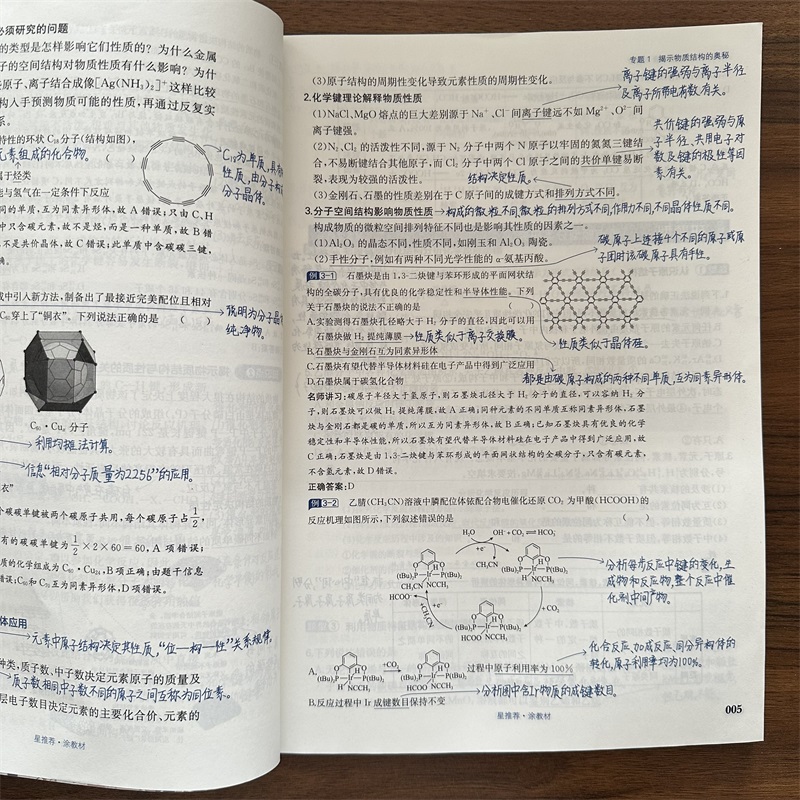 必须研究的问题
的类型是怎样影响它们性质的？为什么金属
子的空间结构对物质性质有什么影响？为什
些原子、离子结合成像[Ag(NH₃)₂]⁺这样比较
构入手预测物质可能的性质，再通过反复实
系。
特性的环状C₁₈分子(结构如图)，
元素组成的化合物。 ( )
属于烃类
能与氢气在一定条件下反应
同的单质，互为同素异形体，故A错误；只由C、H
中只含碳元素，故不是烃，而是一种单质，故B错
不是共价晶体，故C错误；此单质中含碳碳三键，
确。
C₁₈为单质，具有
性质，由分子构
分子晶体。
成中引入新方法，制备出了最接近完美配位且相对
C₆₀穿上了“铜衣”。下列说法正确的是 ( )
说明为分子晶体
纯净物。
C₆₀·Cu₂₄分子
利用均摊法计算。
信息“相对分子质量为2256”的应用。
个碳碳单键被两个碳原子共用，每个碳原子占1/2，
有的碳碳单键为1/2×2×60=60，A项错误；
质的化学组成为C₆₀·Cu₂₄，B项正确；由题干信息
错误；C₆₀和C₇₀互为同素异形体，D项错误。
体应用
元素中原子结构决定其性质，“位—构—性”关系规律。
种类，质子数、中子数决定元素原子的质量及
质子数相同中子数不同的原子之间互称为同位素。
层电子数目决定元素的主要化合价、元素的
星推荐·涂教材
专题1 揭示物质结构的奥秘
(3)原子结构的周期性变化导致元素性质的周期性变化。
离子键的强弱与离子半径
及离子所带电荷数有关。
2.化学键理论解释物质性质
(1)NaCl、MgO熔点的巨大差别源于Na⁺、Cl⁻间离子键远不如Mg²⁺、O²⁻间
离子键强。
(2)N₂、Cl₂的活泼性不同，源于N₂分子中两个N原子以牢固的氮氮三键结
合，不易断键结合其他原子，而Cl₂分子中两个Cl原子之间的共价单键易断
裂，表现为较强的活泼性。
结构决定性质。
共价键的强弱与原
子半径、共用电子对
数及键的极性等因
素有关。
(3)金刚石、石墨的性质差别在于C原子间的成键方式和排列方式不同。
3.分子空间结构影响物质性质
构成的微粒不同，微粒的排列方式不同，作用力不同，不同晶体性质不同。
构成物质的微粒空间排列特征不同也是影响其性质的因素之一。
(1)Al₂O₃的晶态不同，性质不同，如刚玉和Al₂O₃陶瓷。
(2)手性分子，例如有两种不同光学性能的α-氨基丙酸。
碳原子上连接4个不同的原子或原
子团时该碳原子具有手性。
例3-1 石墨炔是由1,3-二炔键与苯环形成的平面网状结
构的全碳分子，具有优良的化学稳定性和半导体性能。下列
关于石墨炔的说法不正确的是 ( )
A.实验测得石墨炔孔径略大于H₂分子的直径，因此可以用
石墨炔做H₂提纯薄膜
性质类似于离子交换膜。
性质类似于晶体硅。
B.石墨炔与金刚石互为同素异形体
C.石墨炔有望代替半导体材料硅在电子产品中得到广泛应用
都是由碳原子构成的两种不同单质，互为同素异形体。
D.石墨炔属于碳氢化合物
名师讲习：碳原子半径大于氢原子，则石墨炔孔径大于H₂分子的直径，可以容纳H₂分
子，则石墨炔可以做H₂提纯薄膜，故A正确；同种元素的不同单质互称同素异形体，石墨
炔与金刚石都是碳的单质，所以互为同素异形体，故B正确；已知石墨炔具有优良的化学
稳定性和半导体性能，所以石墨炔有望代替半导体材料硅在电子产品中得到广泛应用，故
C正确；石墨炔是由1,3-二炔键与苯环形成的平面网状结构的全碳分子，只含有碳元素，
不含氢元素，故D错误。
正确答案：D
例3-2 乙腈(CH₃CN)溶液中膦配位体铱配合物电催化还原CO₂为甲酸(HCOOH)的
反应机理如图所示，下列叙述错误的是 ( )
H₂O OH⁻+CO₂⇌HCO₃⁻
+e⁻ CH₃CN
(tBu)₂P—Ir—P(tBu)₂
CH₃CN NCCH₃
(tBu)₂P—Ir—P(tBu)₂
H NCCH₃
HCOO⁻
+CH₃CN +e⁻ +CO₂
(tBu)₂P—Ir—P(tBu)₂
HCOO NCCH₃
分析每步反应中键的变化，生
成物和反应物，整个反应中催
化剂、中间产物。
A. (tBu)₂P—Ir—P(tBu)₂ +CO₂ (tBu)₂P—Ir—P(tBu)₂ 过程中原子利用率为100%
H NCCH₃ HCOO NCCH₃
化合反应、加成反应、同分异构体的
转化，原子利用率均为100%。
分析图中含Ir物质的成键数目。
B.反应过程中Ir成键数目保持不变
星推荐·涂教材
005